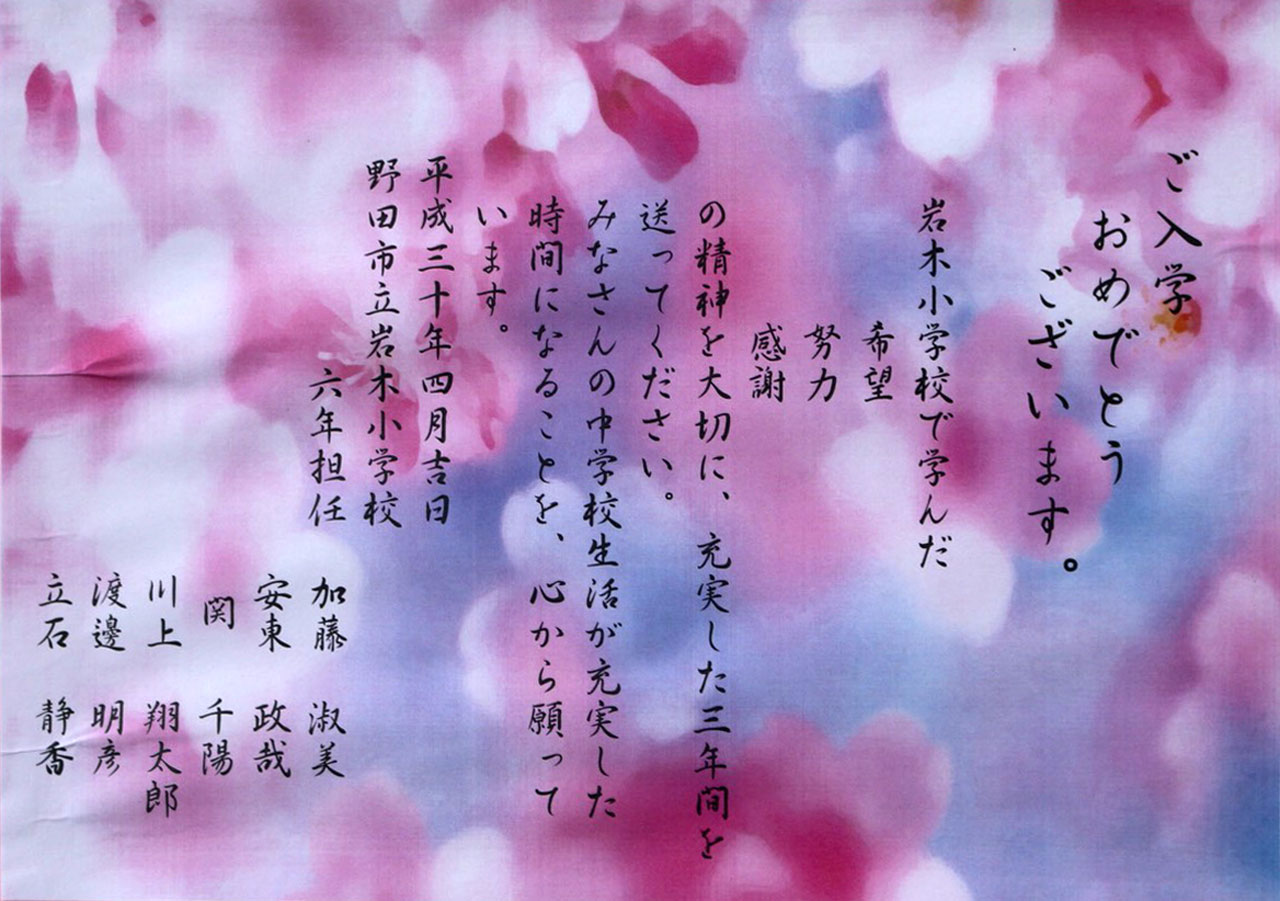 ご入学
おめでとう
ございます。
岩木小学校で学んだ
希望
努力
感謝
の精神を大切に、充実した三年間を
送ってください。
みなさんの中学校生活が充実した
時間になることを、心から願って
います。
平成三十年四月吉日
野田市立岩木小学校
六年担任 加藤 淑美
安東 政哉
関 千陽
川上 翔太郎
渡邊 明彦
立石 静香